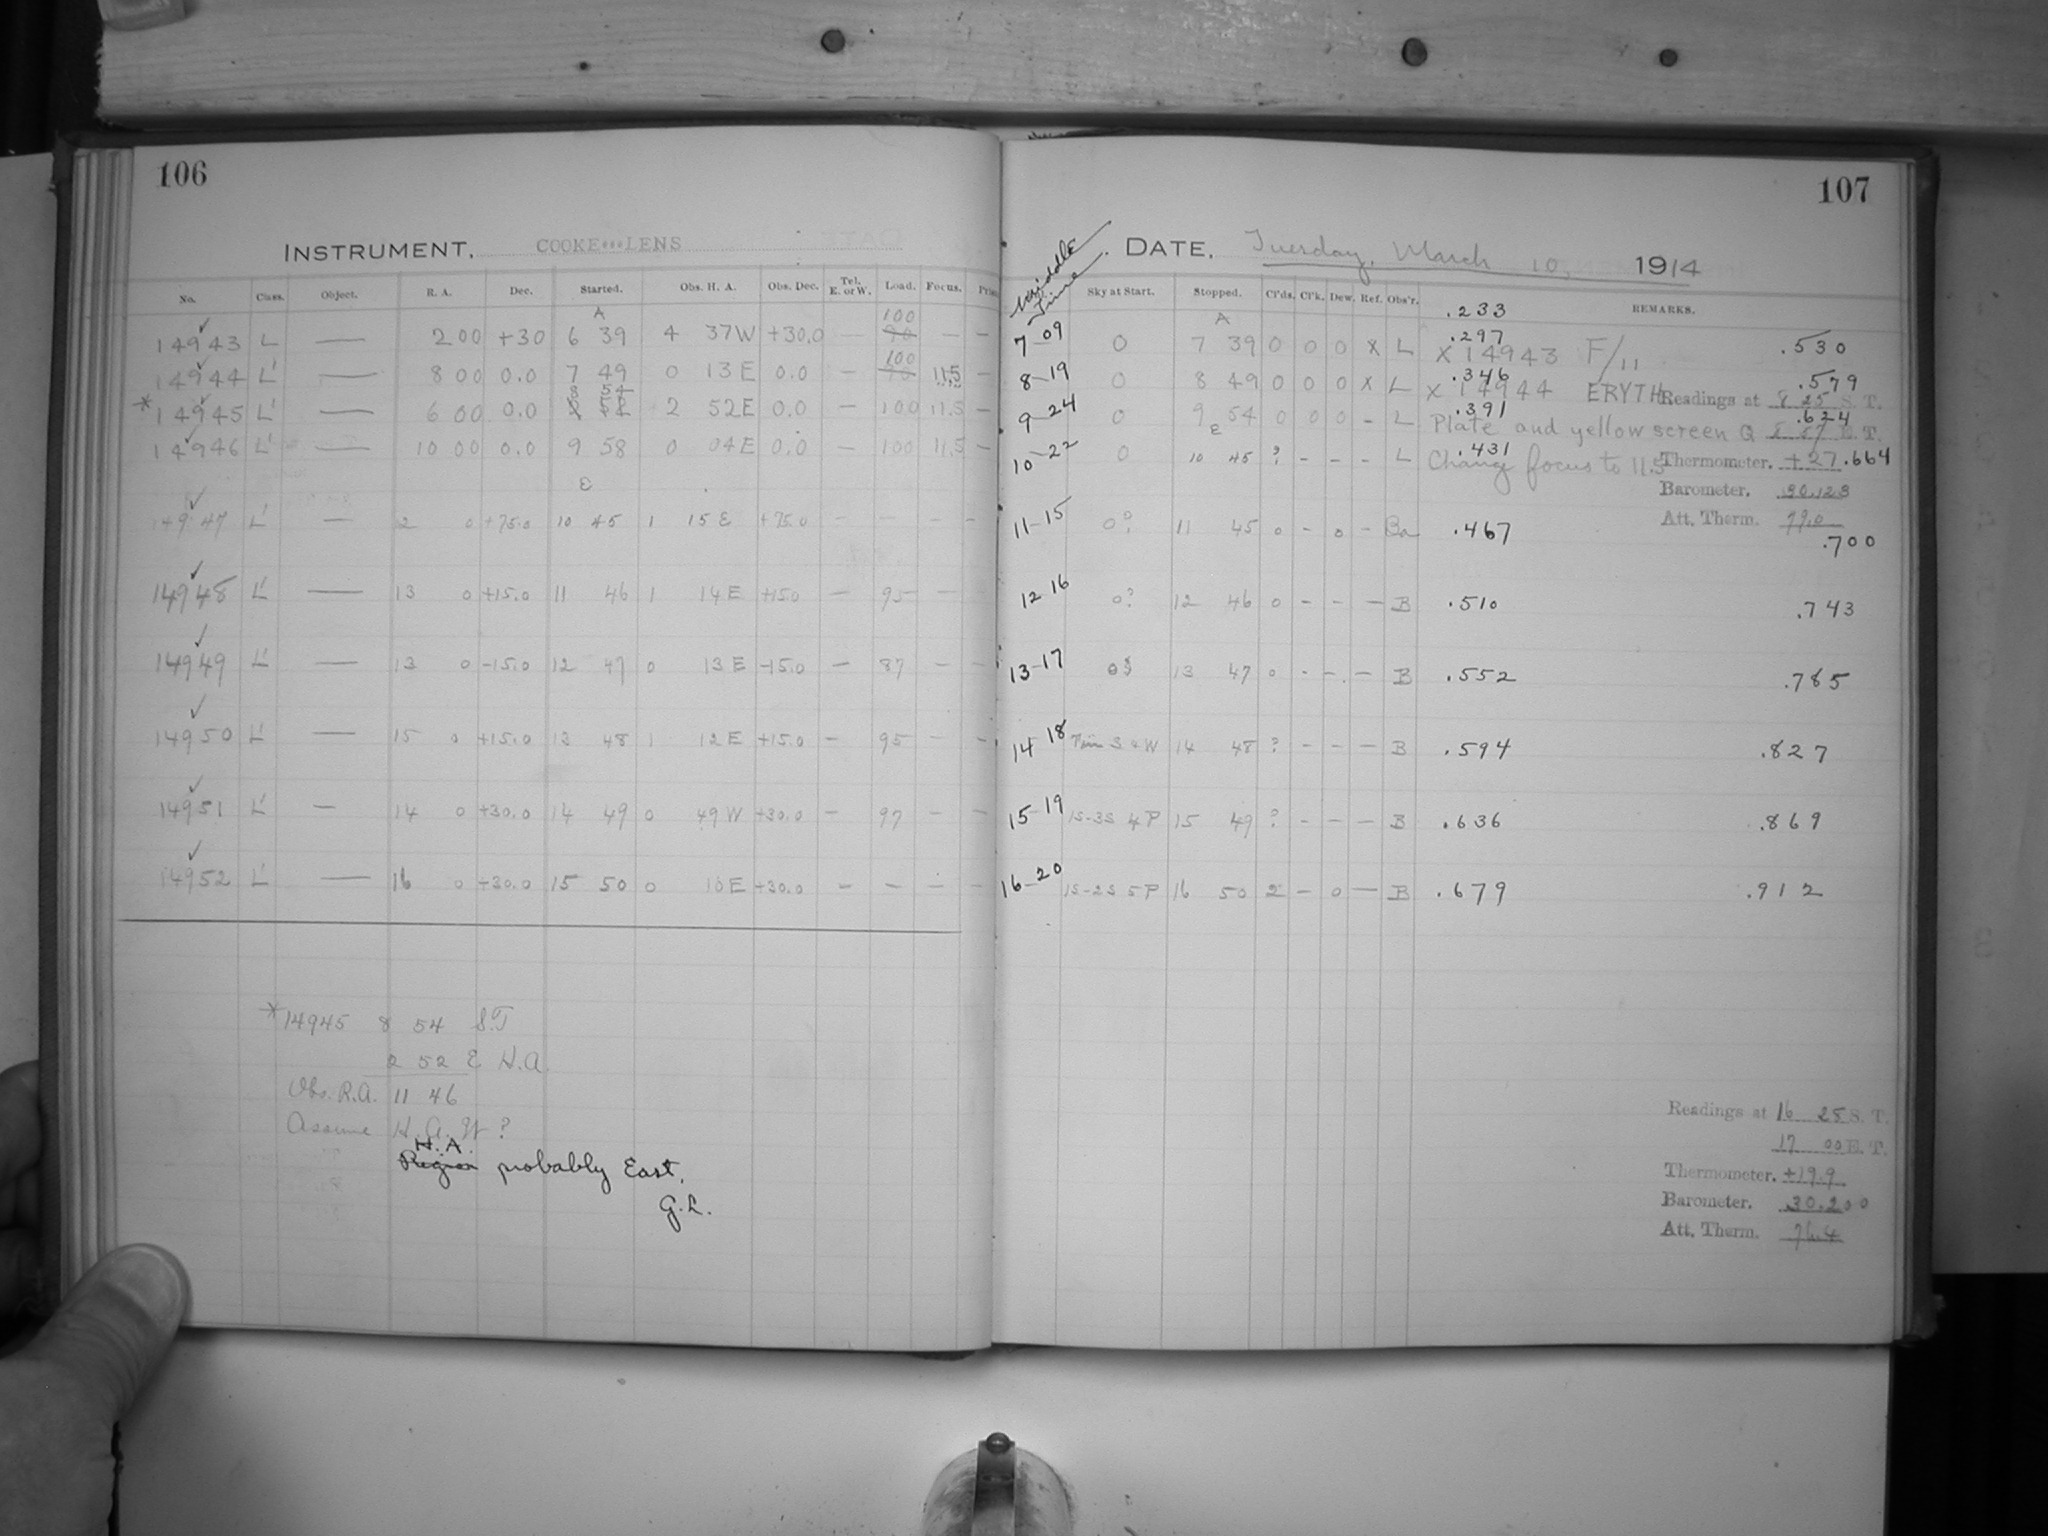 106
INSTRUMENT. COOKE LENS
No. Class. Object. R. A. Dec. Started. Obs. H. A. Obs. Dec. Tel. E. or W. Load. Focus.
A 100
14943 L — 2 00 +30 6 39 4 37 W +30.0 — 90 — —
100
14944 L' — 8 00 0.0 7 49 0 13 E 0.0 — 11.5
8 54
* 14945 L' — 6 00 0.0 2 52 E 0.0 — 100 11.5
14946 L' — 10 00 0.0 9 58 0 04 E 0.0 — 100 11.5 —
E
14947 L' — 2 0 +75.0 10 45 1 15 E +75.0 — — — —
14948 L' — 13 0 +15.0 11 46 1 14 E +15.0 — 95 —
14949 L' — 13 0 -15.0 12 47 0 13 E -15.0 — 87 — —
14950 L' — 15 0 +15.0 13 48 1 12 E +15.0 — 95 — —
14951 L' — 14 0 +30.0 14 49 0 49 W +30.0 — 97 — —
14952 L' — 16 0 +30.0 15 50 0 10 E +30.0 — — — —
*14945 8 54 S.T
2 52 E H.A.
Obs. R.A. 11 46
Assume H.A. W ?
H.A.
Region probably East.
G.L.
107
Middle Time
DATE. Tuesday, March 10, 1914
Sky at Start. Stopped. Cl'ds. Cl'k. Dew. Ref. Obs'r. REMARKS.
.233
A .297
7-09 0 7 39 0 0 0 X L X 14943 F/11 .530
.346
8-19 0 8 49 0 0 0 X L X 14944 ERYTH .579
Readings at 8 25 S. T.
.391 .624
9-24 0 9 54 0 0 0 - L Plate and yellow screen Q E. T.
E .431
10-22 0 10 45 ? - - - L Change focus to 11.5 Thermometer. +27 .664
Barometer. 30.123
Att. Therm. 79.0
11-15 0? 11 45 0 - 0 - Ba .467 .700
12 16 0? 12 46 0 - - - B .510 .743
13-17 13 47 0 - - - B .552 .785
14 18 14 48 ? - - - B .594 .827
15-19 1S-3S 4P 15 49 ? - - - B .636 .869
16-20 1S-2S 5P 16 50 2 - 0 - B .679 .912
Readings at 16 25 S. T.
17 00 E. T.
Thermometer. +19.9
Barometer. 30.200
Att. Therm. 76.4